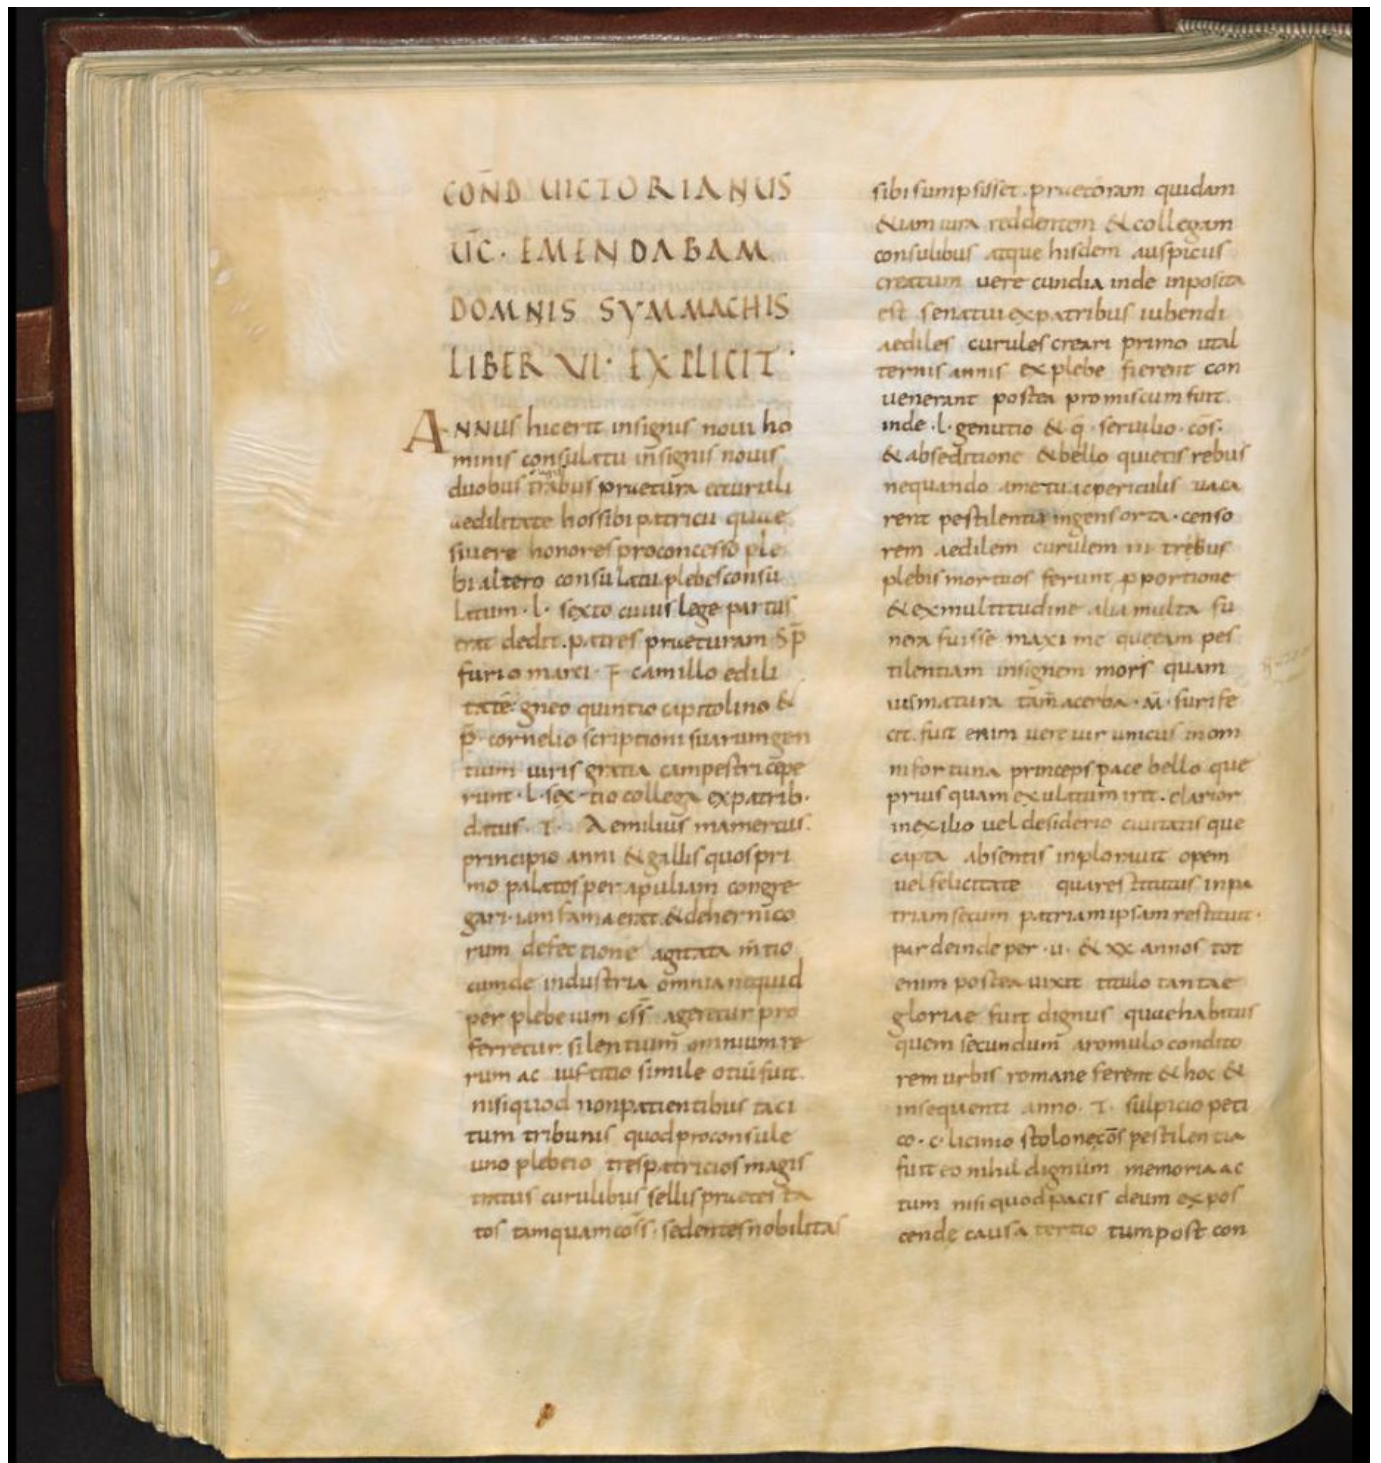 COÑD UICTORIANUS
ŪC· EMENDABAM
DOMNIS SYMMACHIS
LIBER VI· EXPLICIT·
ANNUS hicerit insignis noui ho
minis consulatu insignis nouis
duobus magistrabus praetura etcuruli
aedilitate hossibi patricii quae
siuere honores proconcesso ple
bi altero consulatu plebesconsu
latum · l · sexto cuius lege partus
erat dedit. patres praeturam S̄P̄
furio marci · F̄ camillo edili
tatē gneo quintio capitolino &
p̄· cornelio scriptioni suarumgen
tium uiris gratia campestri cēpe
runt · l · sex-tio collega expatrib·
datus · T · Aemilius mamercus·
principio anni & gallis quospri
mo palatos per apuliam congre
gari · iam fama erat & dehernico
rum defectione agitata m̄tio
cumde industria omnia nequid
per plebeium c̄s̄s̄ ageretur pro
ferretur silentium̄ omnium re
rum ac iustitio simile otiū fuit
nisiquod nonpatientibus taci
tum tribunis quodproconsule
uno plebeio trespatricios magis
tratus curulibus sellis praetexta
tos tamquam cōs̄s̄ · sedentes nobilitas
sibi sumpsisset · praetoram quidam
&iam iura reddentem & collegam
consulibus atque hisdem auspicus
creatum uere cundia inde inposita
est senatui expatribus iubendi
aediles curules creari primo utal
ternis annis ex plebe fierent con
uenerant postea promiscum fuit
inde · l · genutio & q̄ · seruilio · cōs̄·
& abseditione &bello quietis rebus
nequando ametu acpericulis uaca
rent pestilentia ingens orta · censo
rem aedilem curulem iii trebus
plebis mortuos ferunt p portione
& exmultitudine alia multa fu
nera fuisse maxime queeam pes
tilentiam insignem mors quam
uismatura tam̄ acerba · M̄ · furi fe
cit. fuit enim uere uir unicus inom
ni fortuna princeps pace bello que
prius quam exulatum iret · clarior
inexilio uel desiderio ciuitatis que
capta absentis inplorauit opem
uel felicitate quarestitutus inpa
triam secum patriam ipsam restituit ·
par deinde per · u · & xx annos tot
enim postea uixit titulo tantae
gloriae fuit dignus quaehabitus
quem secundum̄ aromulo condito
rem urbis romane ferent & hoc &
insequenti anno · T · sulpicio peti
co · c · licinio stolonecōs̄ pestilentia
fuit eo nihil dignum memoria ac
tum nisi quodpacis deum expos
cende causa tertio tumpost con